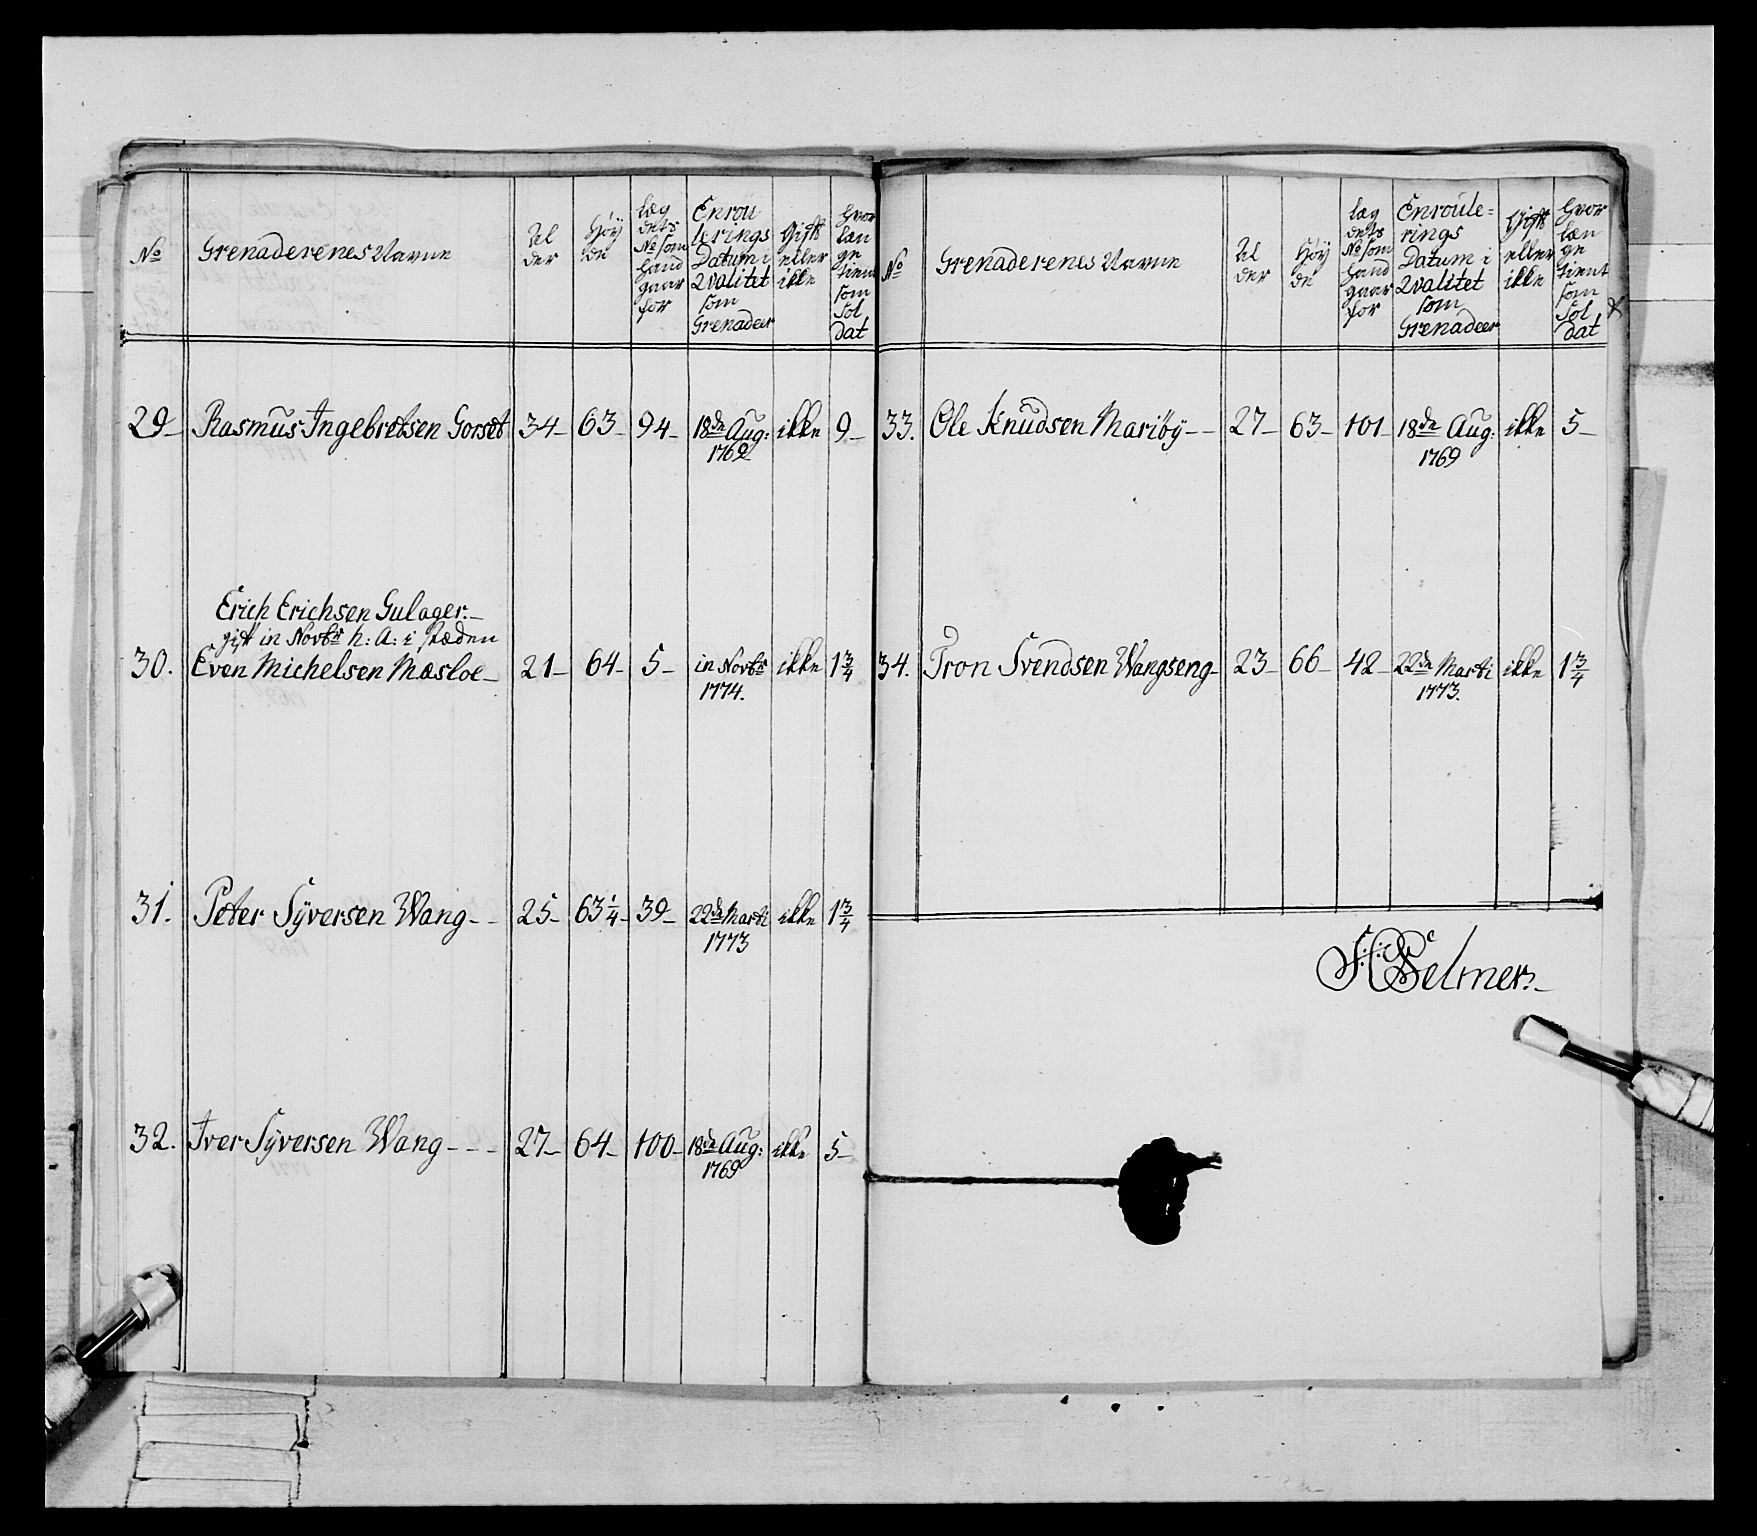 No
Grenaderenes Navne
Al
der
Høÿ
de
læg
dets
No som
hand
gaar
for
Enrou
lerings
Datum i
Qvalitet
som
Grenadeer
Gift
eller
ikke
Hvor
læn
ge
tient
som
Sol
dat
29 Rasmus Ingebretsen Gorset 34 63 94 18de Aug: ikke 9
1769
Erich Erichsen Gulager
gift in Novbr h: A: i stæden
30. Even Michelsen Mæsloe 21 64 5 in Novbr ikke 1 3/4
1774.
31. Peter Sÿversen Wang 25 63 1/4 39 22de Marti ikke 1 3/4
1773
32. Iver Sÿversen Wang 27 64 100 18de Aug: ikke 5
1769
No
Grenaderenes Navne
Al
der
Høÿ
de
læg
dets
No som
hand
gaar
for
Enroule=
rings
Datum i
Qvalitet
som
Grenadeer
Gift
eller
ikke
Hvor
læn
ge
tient
som
Sol
dat
33. Ole Knudsen Mariøÿ 27 63 101 18de Aug: ikke 5
1769
34. Tron Svendsen Wangseng 23 66 42 22de Marti ikke 1 3/4
1773.
Selmer